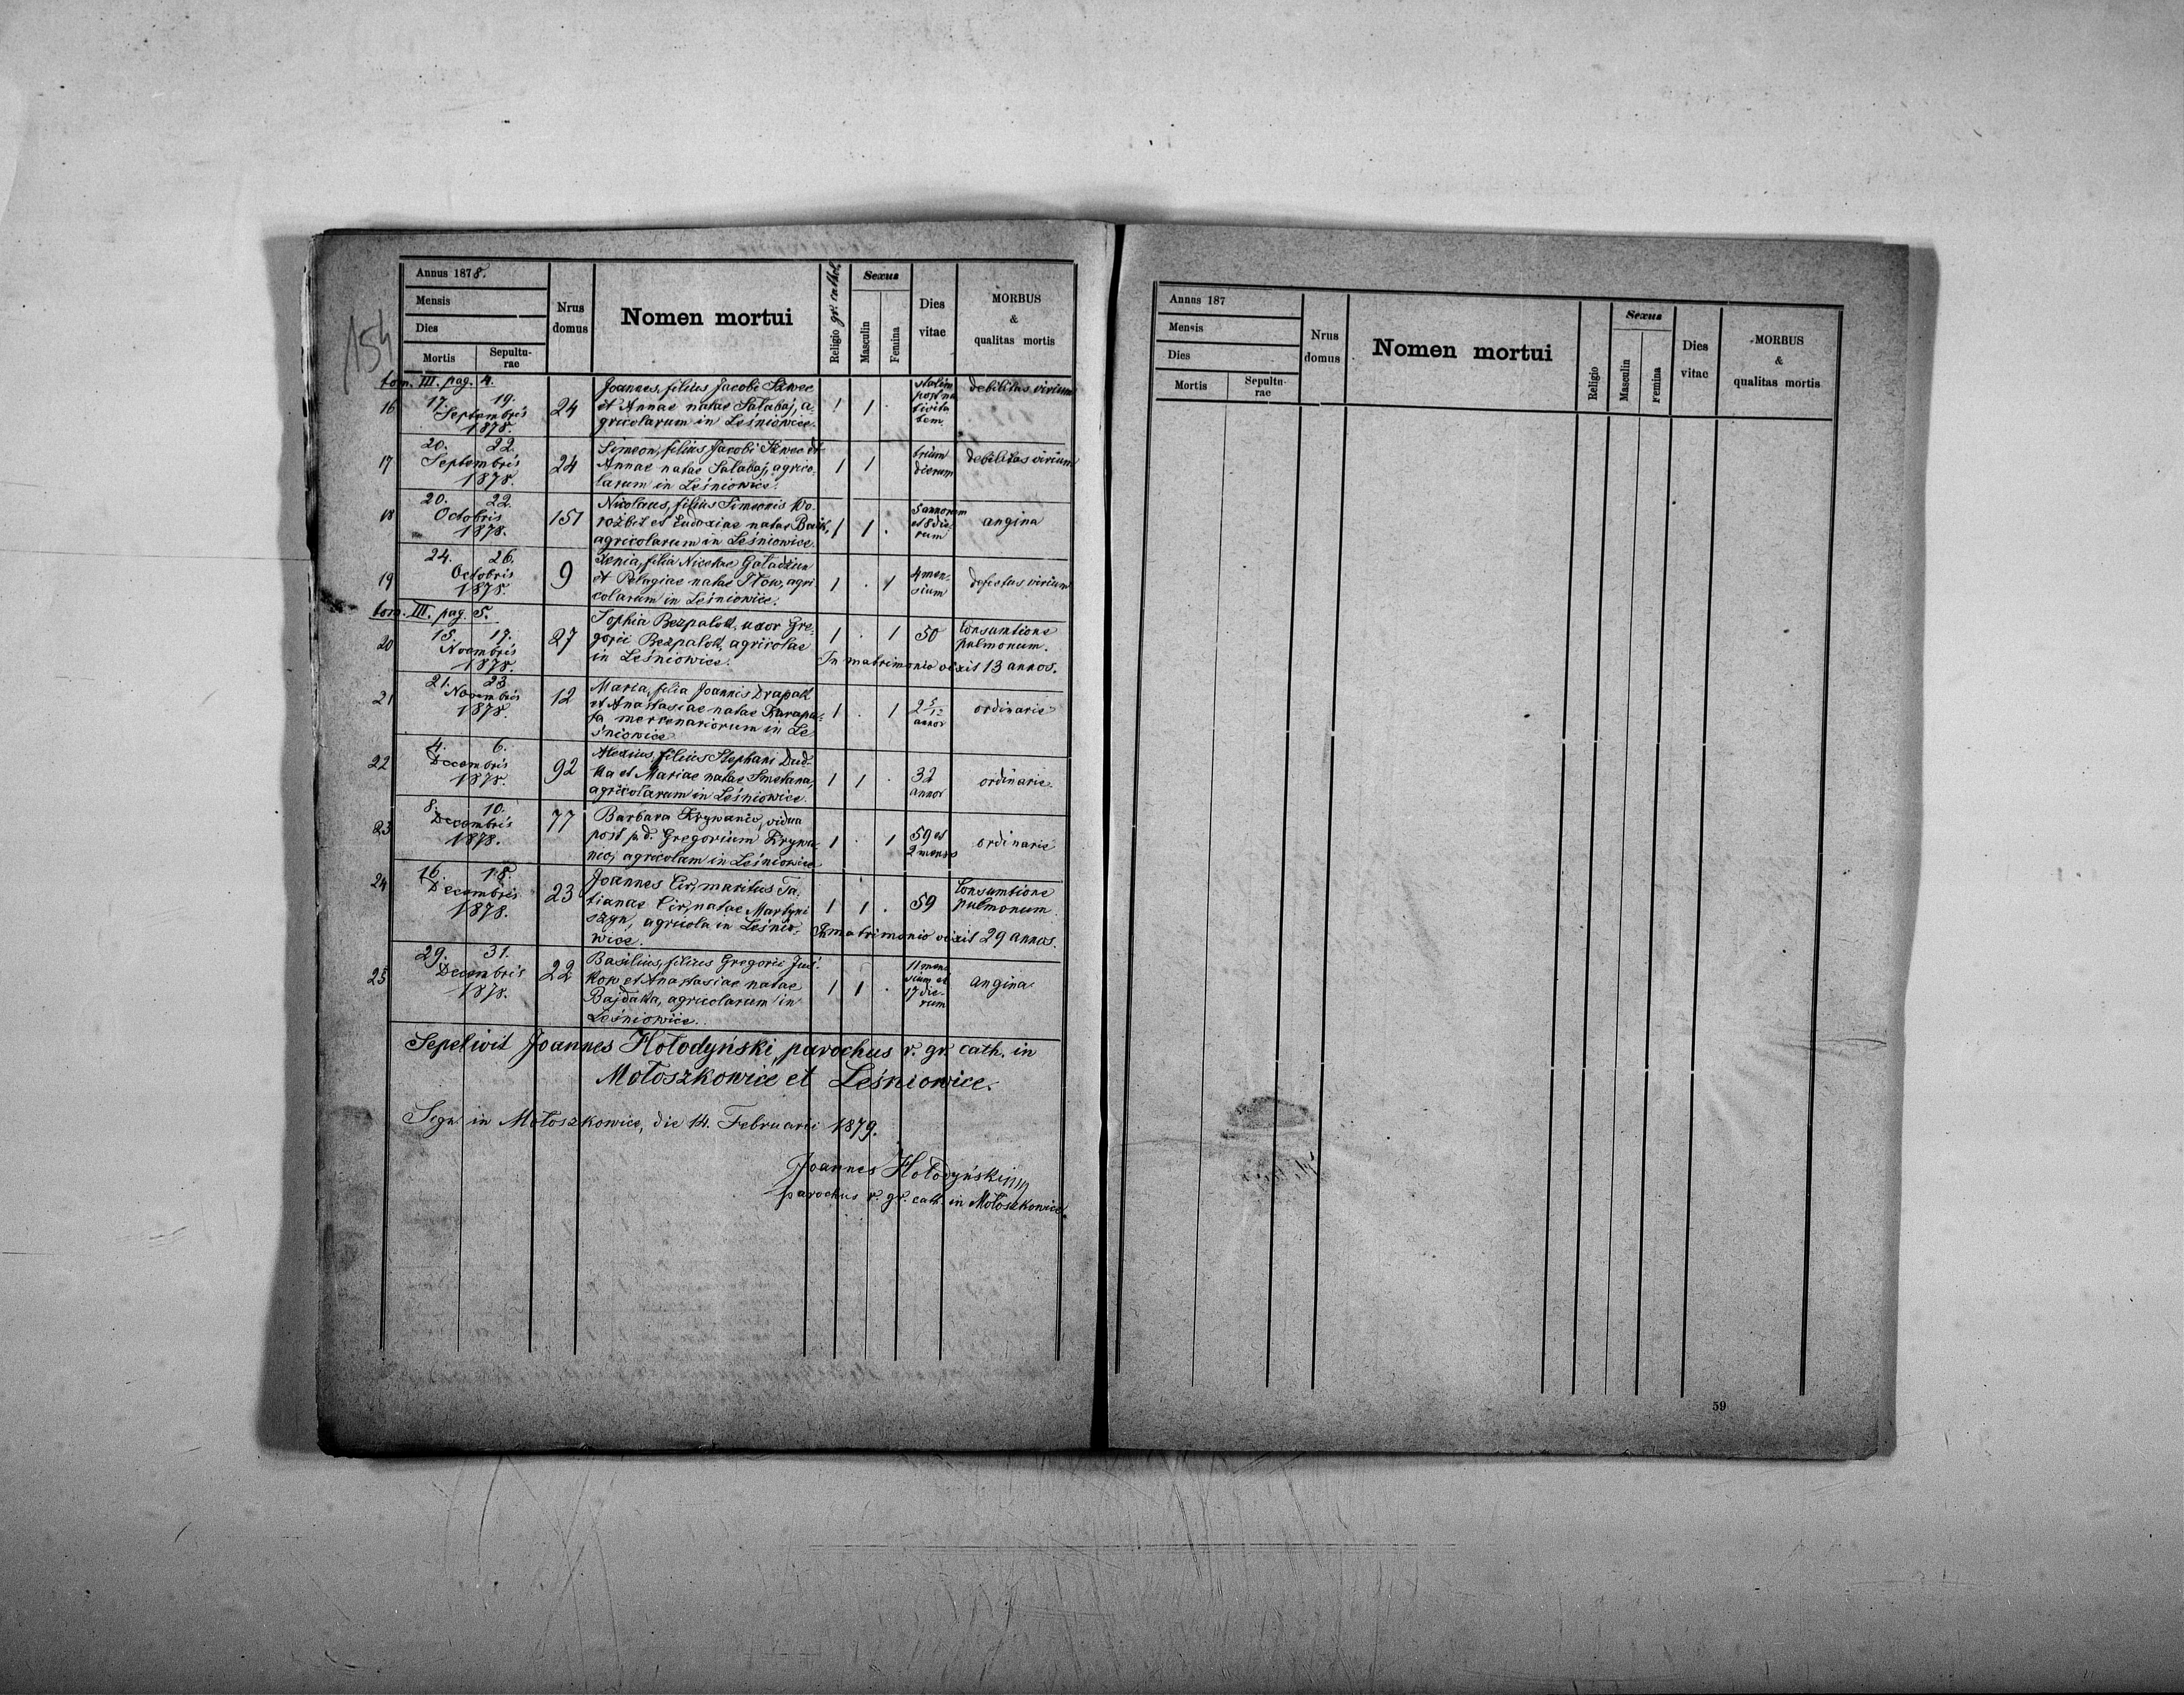 154
Annus 1878.
Mensis
Dies
Mortis
Sepultu-
rae
Nrus
domus
Nomen mortui
Religio gr. cathol.
Sexus
Masculin
Femina
Dies
vitae
MORBUS
&
qualitas mortis
tom. III. pag. 4.
16
17. 19.
Septembris
1878.
24
Joannes, filius Jacobi Szwec
et Annae natae Salabaj, a-
gricolarum in Leśniowice.
1 1 .
statim
post na
tivita
tem
debilitas virium
17
20. 22.
Septembris
1878.
24
Simeon, filius Jacobi Szwec et
Annae natae Salabaj, agrico-
larum in Leśniowice.
1 1
trium
dierum
debilitas virium
18
20. 22.
Octobris
1878.
151
Nicolaus, filius Simeonis Wo-
rożbit et Eudoxiae natae
agricolarum in Leśniowice.
1 1 .
5 annorum
et 8 die-
rum
angina
19
24. 26.
Octobris
1878.
9
Xenia, filia Nicetae Galadżun
et Pelagiae natae Iłow, agri
colarum in Leśniowice.
1 . 1
4 men-
sium
defectus virium
tom. III. pag. 5.
20
15. 17.
Novembris
1878.
27
Sophia Bezpalok, uxor Gre-
gorii Bezpalok, agricolae
in Leśniowice.
1 . 1
50
Consumtione
pulmonum.
In matrimonio vixit 13 annos.
21
21. 23.
Novembris
1878.
12
Maria, filia Joannis Drapak
et Anastasiae natae Karapa-
ta mercenariorum in Le
śniowice
1 . 1
2 5/12
annor
ordinarie
22
4. 6.
Decembris
1878.
92
Alexius, filius Stephani Dud-
ka et Mariae natae Smetana,
agricolarum in Leśniowice.
1 1 .
32
annor
ordinarie.
23
8. 10.
Decembris
1878.
77
Barbara Krywanio, vidua
post p.d. Gregorium Krywa-
nio, agricolam in Leśniowice
1 . 1
59 et
2 mens
ordinarie
24
16. 18.
Decembris
1878.
23
Joannes Cir, maritus Ta-
tianae Cir, natae Martyni
szyn, agricola in Leśnio-
wice.
1 1 .
59
Consumtione
pulmonum
In matrimonio vixit 29 annos.
25
29. 31.
Decembris
1878.
22
Basilius, filius Gregorii Juś-
kow et Anastasiae natae
Bajdała, agricolarum in
Leśniowice.
1 1 .
11 men-
sium et
17 die-
rum
angina
Sepelivit Joannes Hołodyński, parochus r. gr. cath. in
Mołoszkowice et Leśniowice.
Sign. in Mołoszkowice, die 14. Februarii 1879.
Joannes Hołodyński
parochus r. gr. cath. in Mołoszkowice.
Annus 187
Mensis
Dies
Mortis
Sepultu-
rae
Nrus
domus
Nomen mortui
Religio
Sexus
Masculin
Femina
Dies
vitae
MORBUS
&
qualitas mortis
59